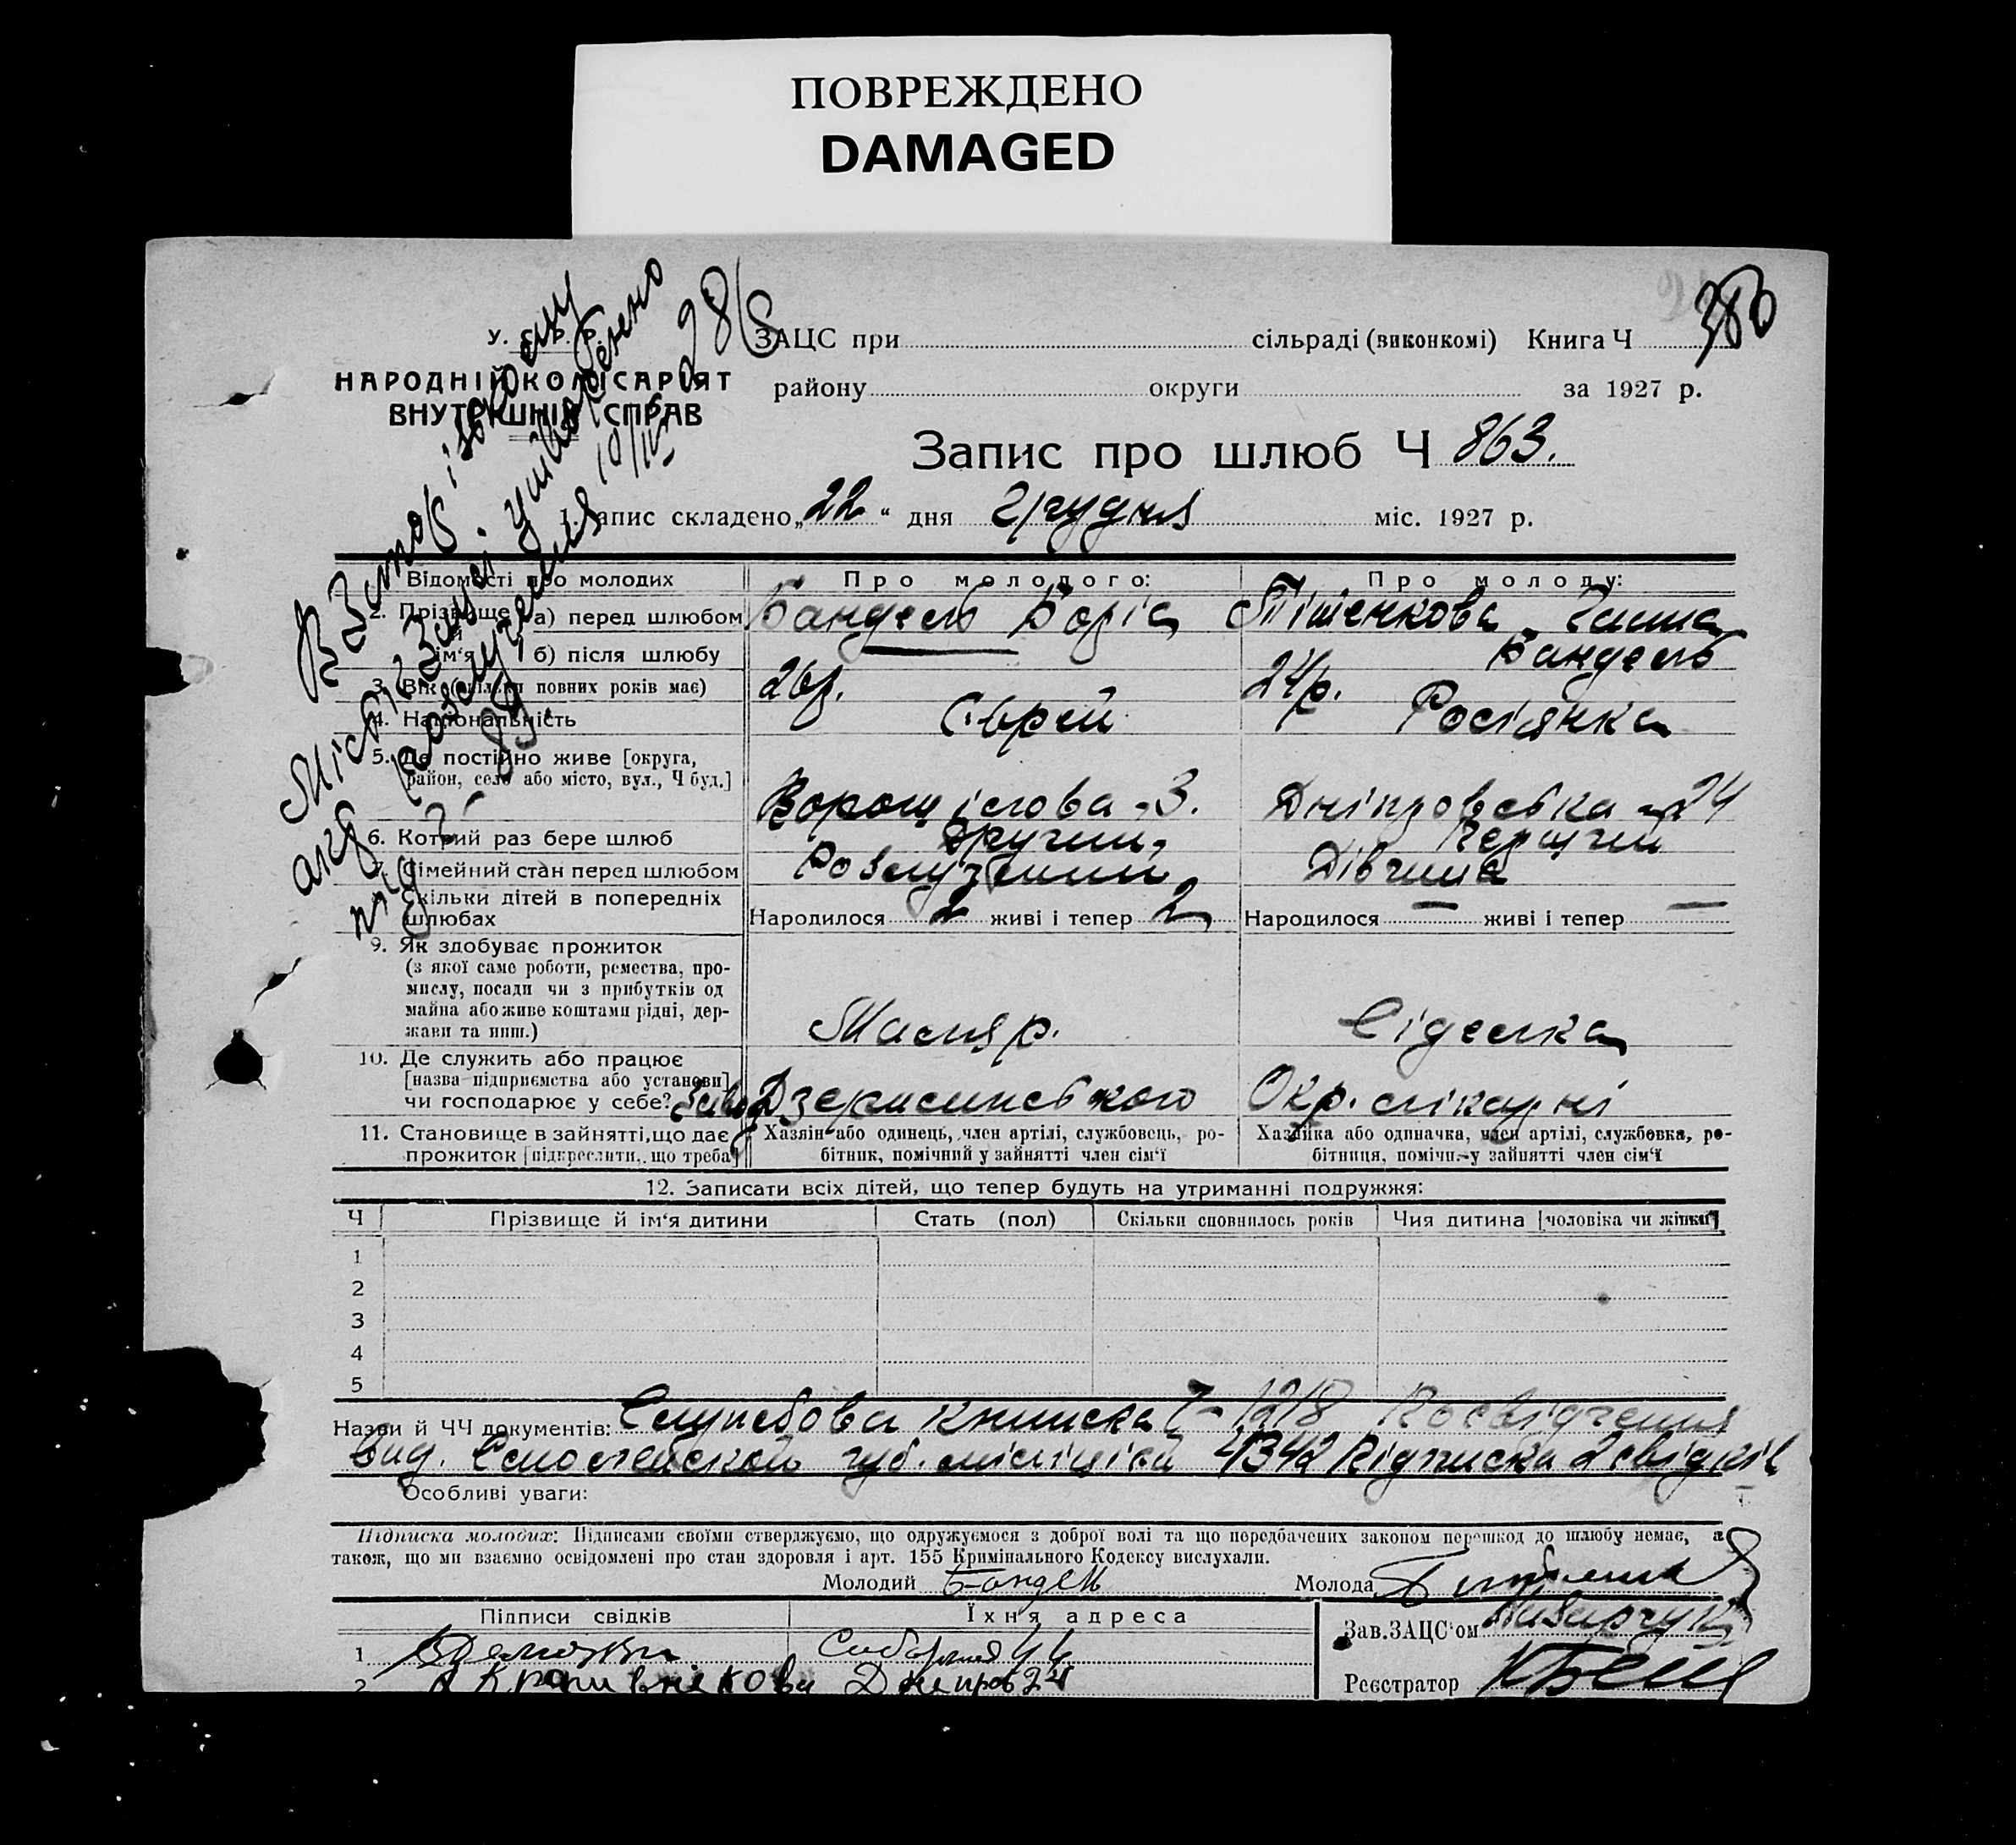 ПОВРЕЖДЕНО
DAMAGED
380
У. С. Р. Р.
НАРОДНІЙ КОМІСАРІЯТ
ВНУТРІШНІХ СПРАВ
ЗАЦС при сільраді (виконкомі) Книга Ч
району округи за 1927 р.
Запис про шлюб Ч 863.
1. Запис складено „22“ дня Грудня міс. 1927 р.
Відомості про молодих Про молодого: Про молоду:
2. Прізвище й ім‘я а) перед шлюбом Бандель Боріс Пішенкова Ганна
б) після шлюбу Бандель
3. Вік (скільки повних років має) 26р. 24р.
4. Національність Єврей Росіянка
5. Де постійно живе [округа,
район, село або місто, вул., Ч буд.] Ворошілова - 3. Дніпровська - 24
6. Котрий раз бере шлюб другий Перший
7. Сімейний стан перед шлюбом Розлучений Дівчина
8. Скільки дітей в попередніх
шлюбах Народилося 2 живі і тепер 2 Народилося — живі і тепер —
9. Як здобуває прожиток
(з якої саме роботи, ремества, про-
мислу, посади чи з прибутків од
майна або живе коштами рідні, дер-
жави та инш.) Маляр. Сіделка
10. Де служить або працює
[назва підприємства або установи]
чи господарює у себе? Завод Дзержинського Окр. лікарні
11. Становище в зайнятті, що дає
прожиток [підкреслити, що треба]
Хазяїн або одинець, член артілі, службовець, ро-
бітник, помічний у зайнятті член сім‘ї
Хазяйка або одиначка, член артілі, службовка, ро-
бітниця, помічн. у зайнятті член сім‘ї
12. Записати всіх дітей, що тепер будуть на утриманні подружжя:
Ч Прізвище й ім‘я дитини Стать (пол) Скільки сповнилось років Чия дитина [чоловіка чи жінки]
1
2
3
4
5
Назви й ЧЧ документів: Службова книжка Ч- 1218 Посвідчення
вид. губ. міліцією 4342 Підписка 2 свідків
Особливі уваги:
Підписка молодих: Підписами своїми стверджуємо, що одружуємося з доброї волі та що передбачених законом перешкод до шлюбу немає, а
також, що ми взаємно освідомлені про стан здоровля і арт. 155 Кримінального Кодексу вислухали.
Молодий Бандель Молода
Підписи свідків Їхня адреса
Зав. ЗАЦС‘ом
1
2 Кропивнікова Днепров 24
Реєстратор